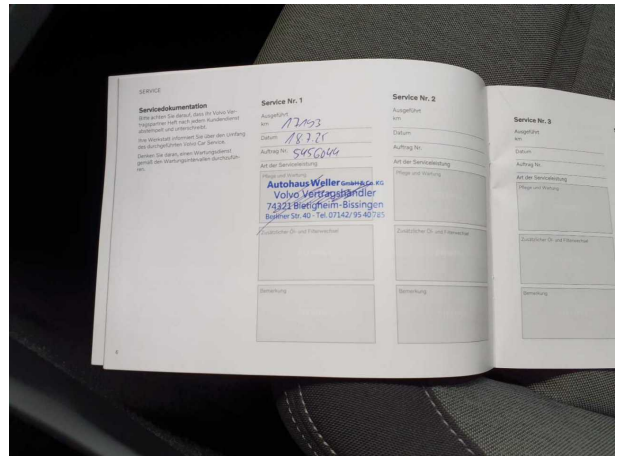 SERVICE
Servicedokumentation
Bitte achten Sie darauf, dass Ihr Volvo Ver-
tragspartner Heft nach jedem Kundendienst
abstempelt und unterschreibt.
Ihre Werkstatt informiert Sie über den Umfang
des durchgeführten Volvo Car Service.
Denken Sie daran, einen Wartungsdienst
gemäß den Wartungsintervallen durchzufüh-
ren.
6
Service Nr. 1
Ausgeführt
km 17193
Datum 18.7.25
Auftrag Nr. 5456044
Art der Serviceleistung
Pflege und Wartung
Autohaus Weller GmbH & Co. KG
Volvo Vertragshändler
74321 Bietigheim-Bissingen
Berliner Str. 40 - Tel. 07142/95 40 785
Zusätzlicher Öl- und Filterwechsel
Bemerkung
Service Nr. 2
Ausgeführt
km
Datum
Auftrag Nr.
Art der Serviceleistung
Pflege und Wartung
Zusätzlicher Öl- und Filterwechsel
Bemerkung
Service Nr. 3
Ausgeführt
km
Datum
Auftrag Nr.
Art der Serviceleistung
Pflege und Wartung
Zusätzlicher Öl- und Filterwechsel
Bemerkung